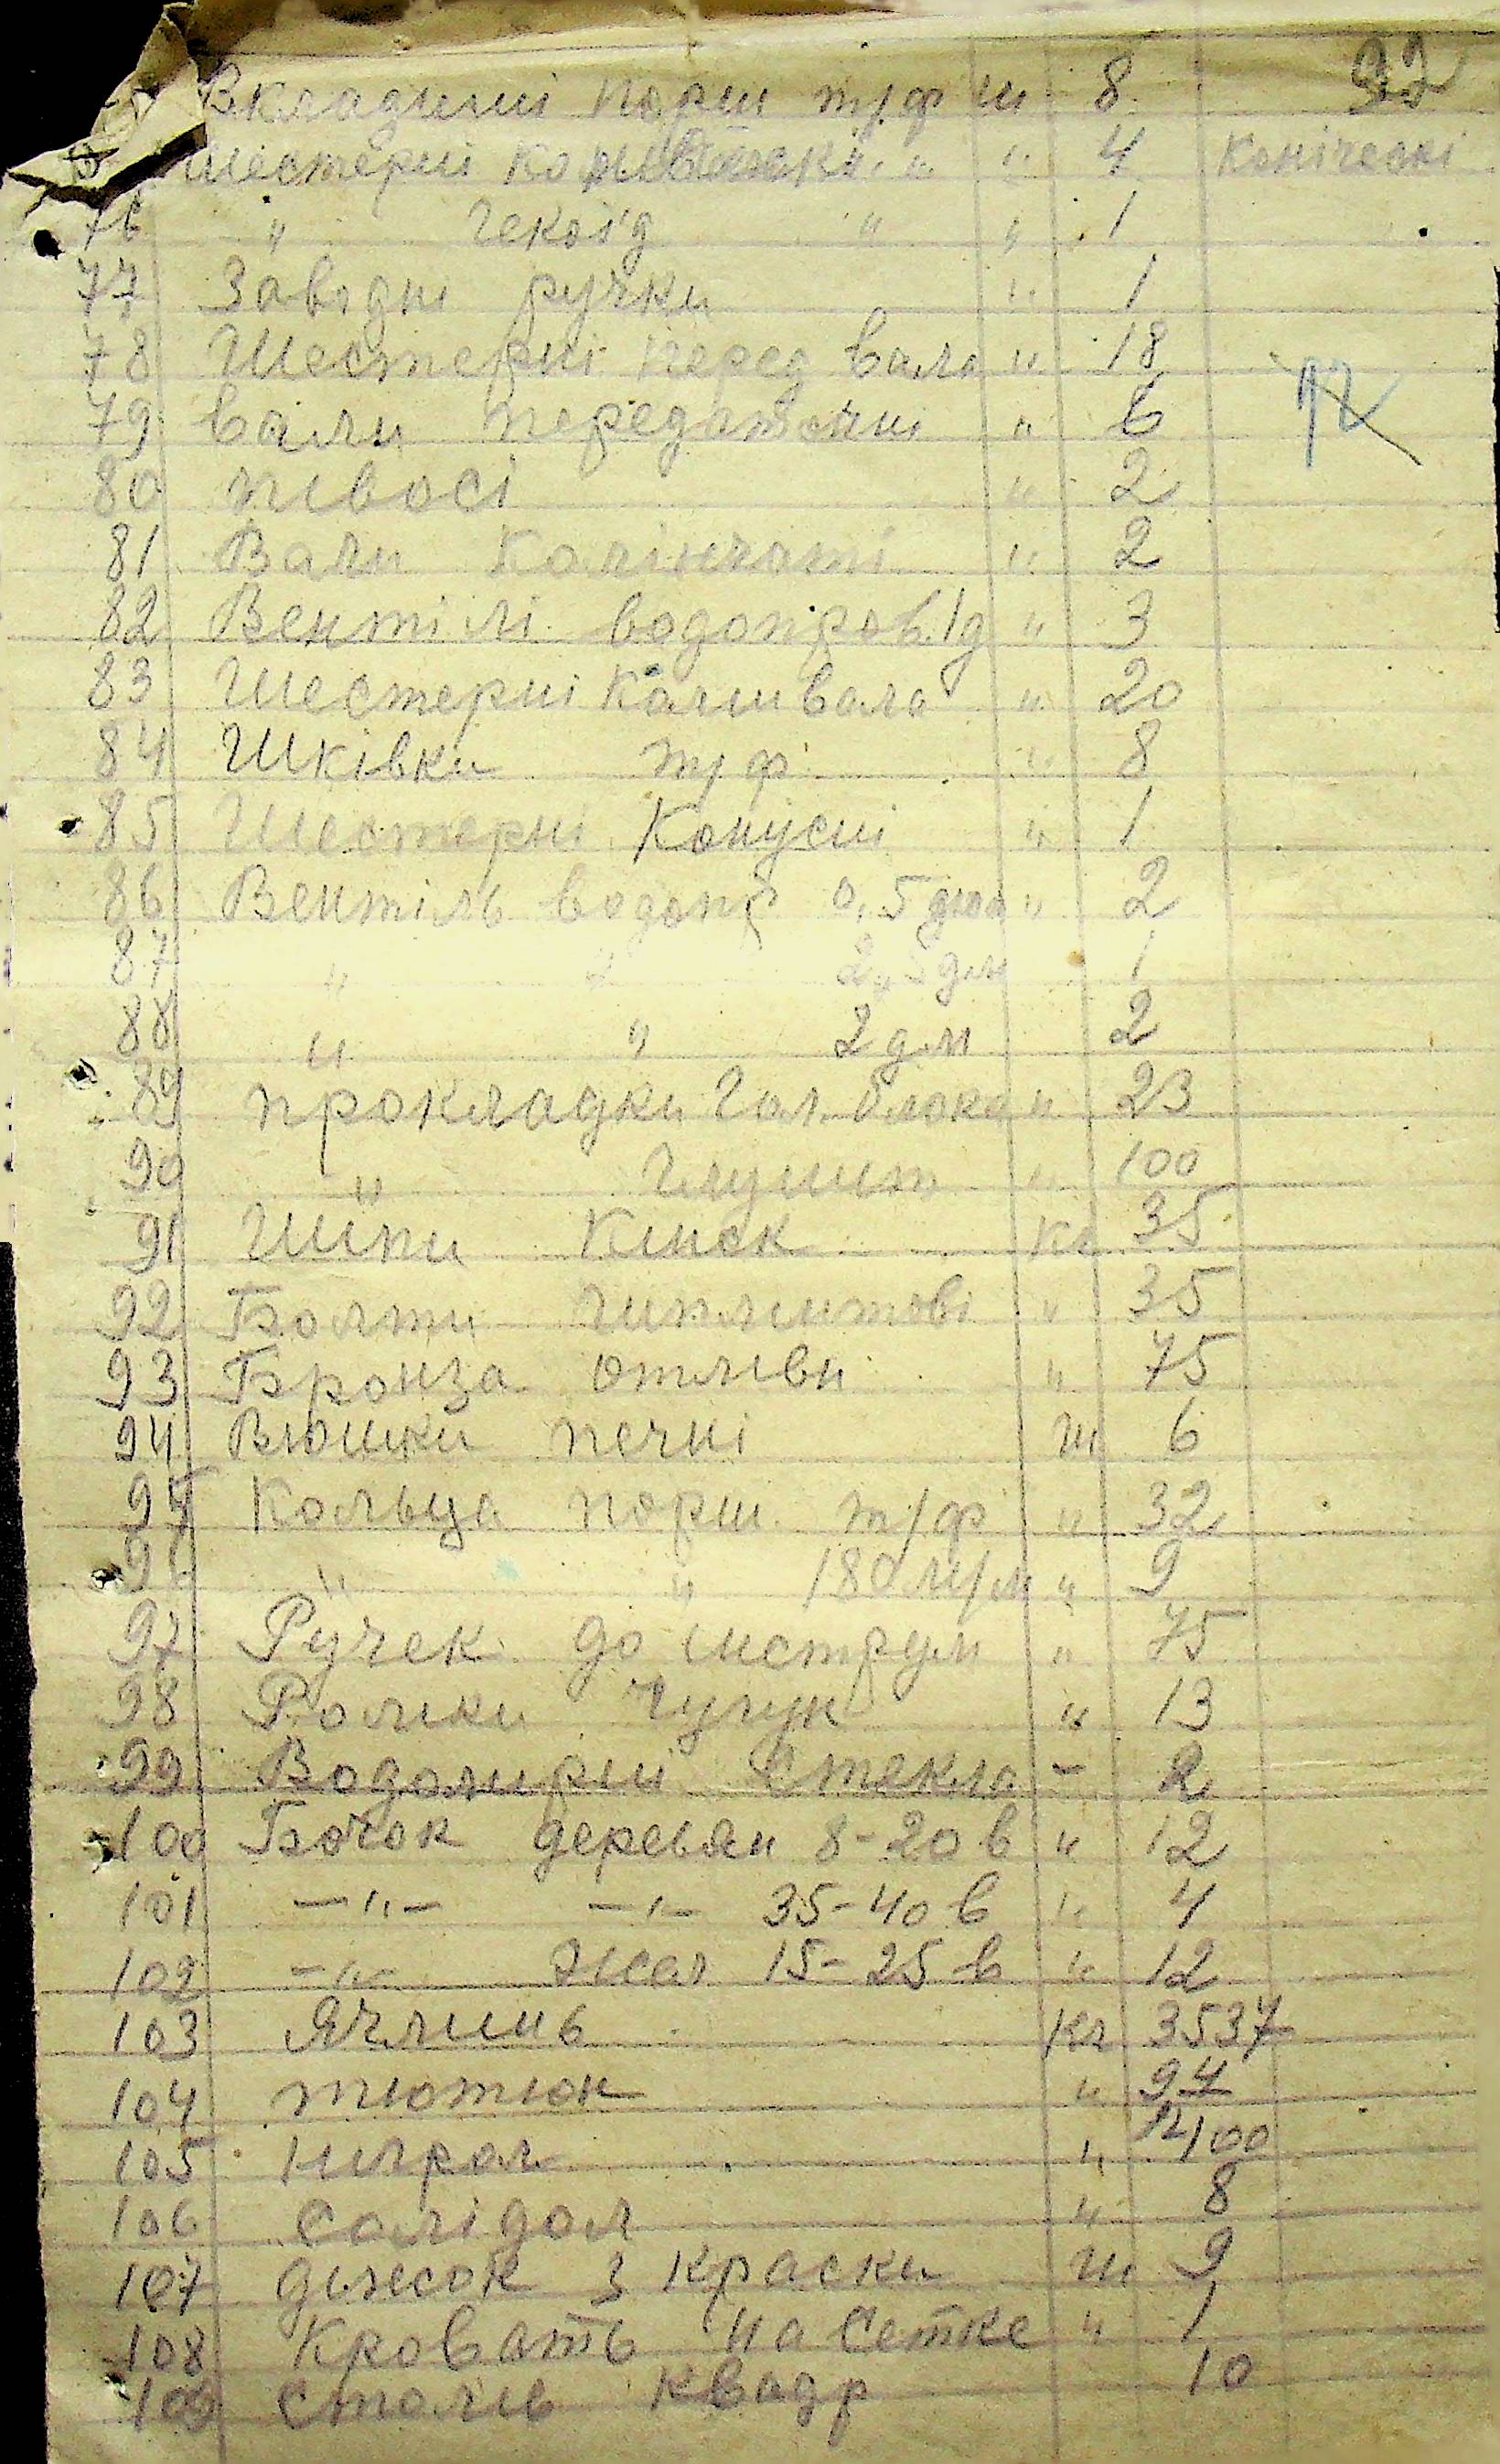 Вкладиші порш т/ф ш 8 92
Шестерні " " 4 Коніческі
76 " " " 1
77 Заводні ручки " 1
78 Шестерні перед вала " 18
79 Вали передаточні " 6 12
80 півосі " 2
81 Вали Калінчаті " 2
82 Вентілі водопров.д " 3
83 Шестерні Калин вала " 20
84 Шківки т/ф " 8
85 Шестерні Конусні " 1
86 Вентіль водопр 0,5 дюй " 2
87 " " 2,5 дм 1
88 " " 2 дм 2
89 прокладки Гол. блока " 23
90 " Глушит " 100
91 Шипи Кінск Кг 35
92 Болти " 35
93 Бронза отливн " 75
94 Вюшки печні ш 6
95 Кольца порш т/ф " 32
96 " " 180 м/м " 9
97 Ручек до інструм " 75
98 Ролики Чугун " 13
99 Водомирні стекла - 2
100 Бочок деревян 8-20 в " 12
101 -"- -"- 35-40 в " 4
102 -"- жел 15-25 в " 12
103 Ячмінь Кг 3537
104 тютюн " 94
105 Нігрол " 12100
106 Солідол " 8
107 діжок з краски ш 9
108 Кровать на сетке " 1
109 столів квадр 10